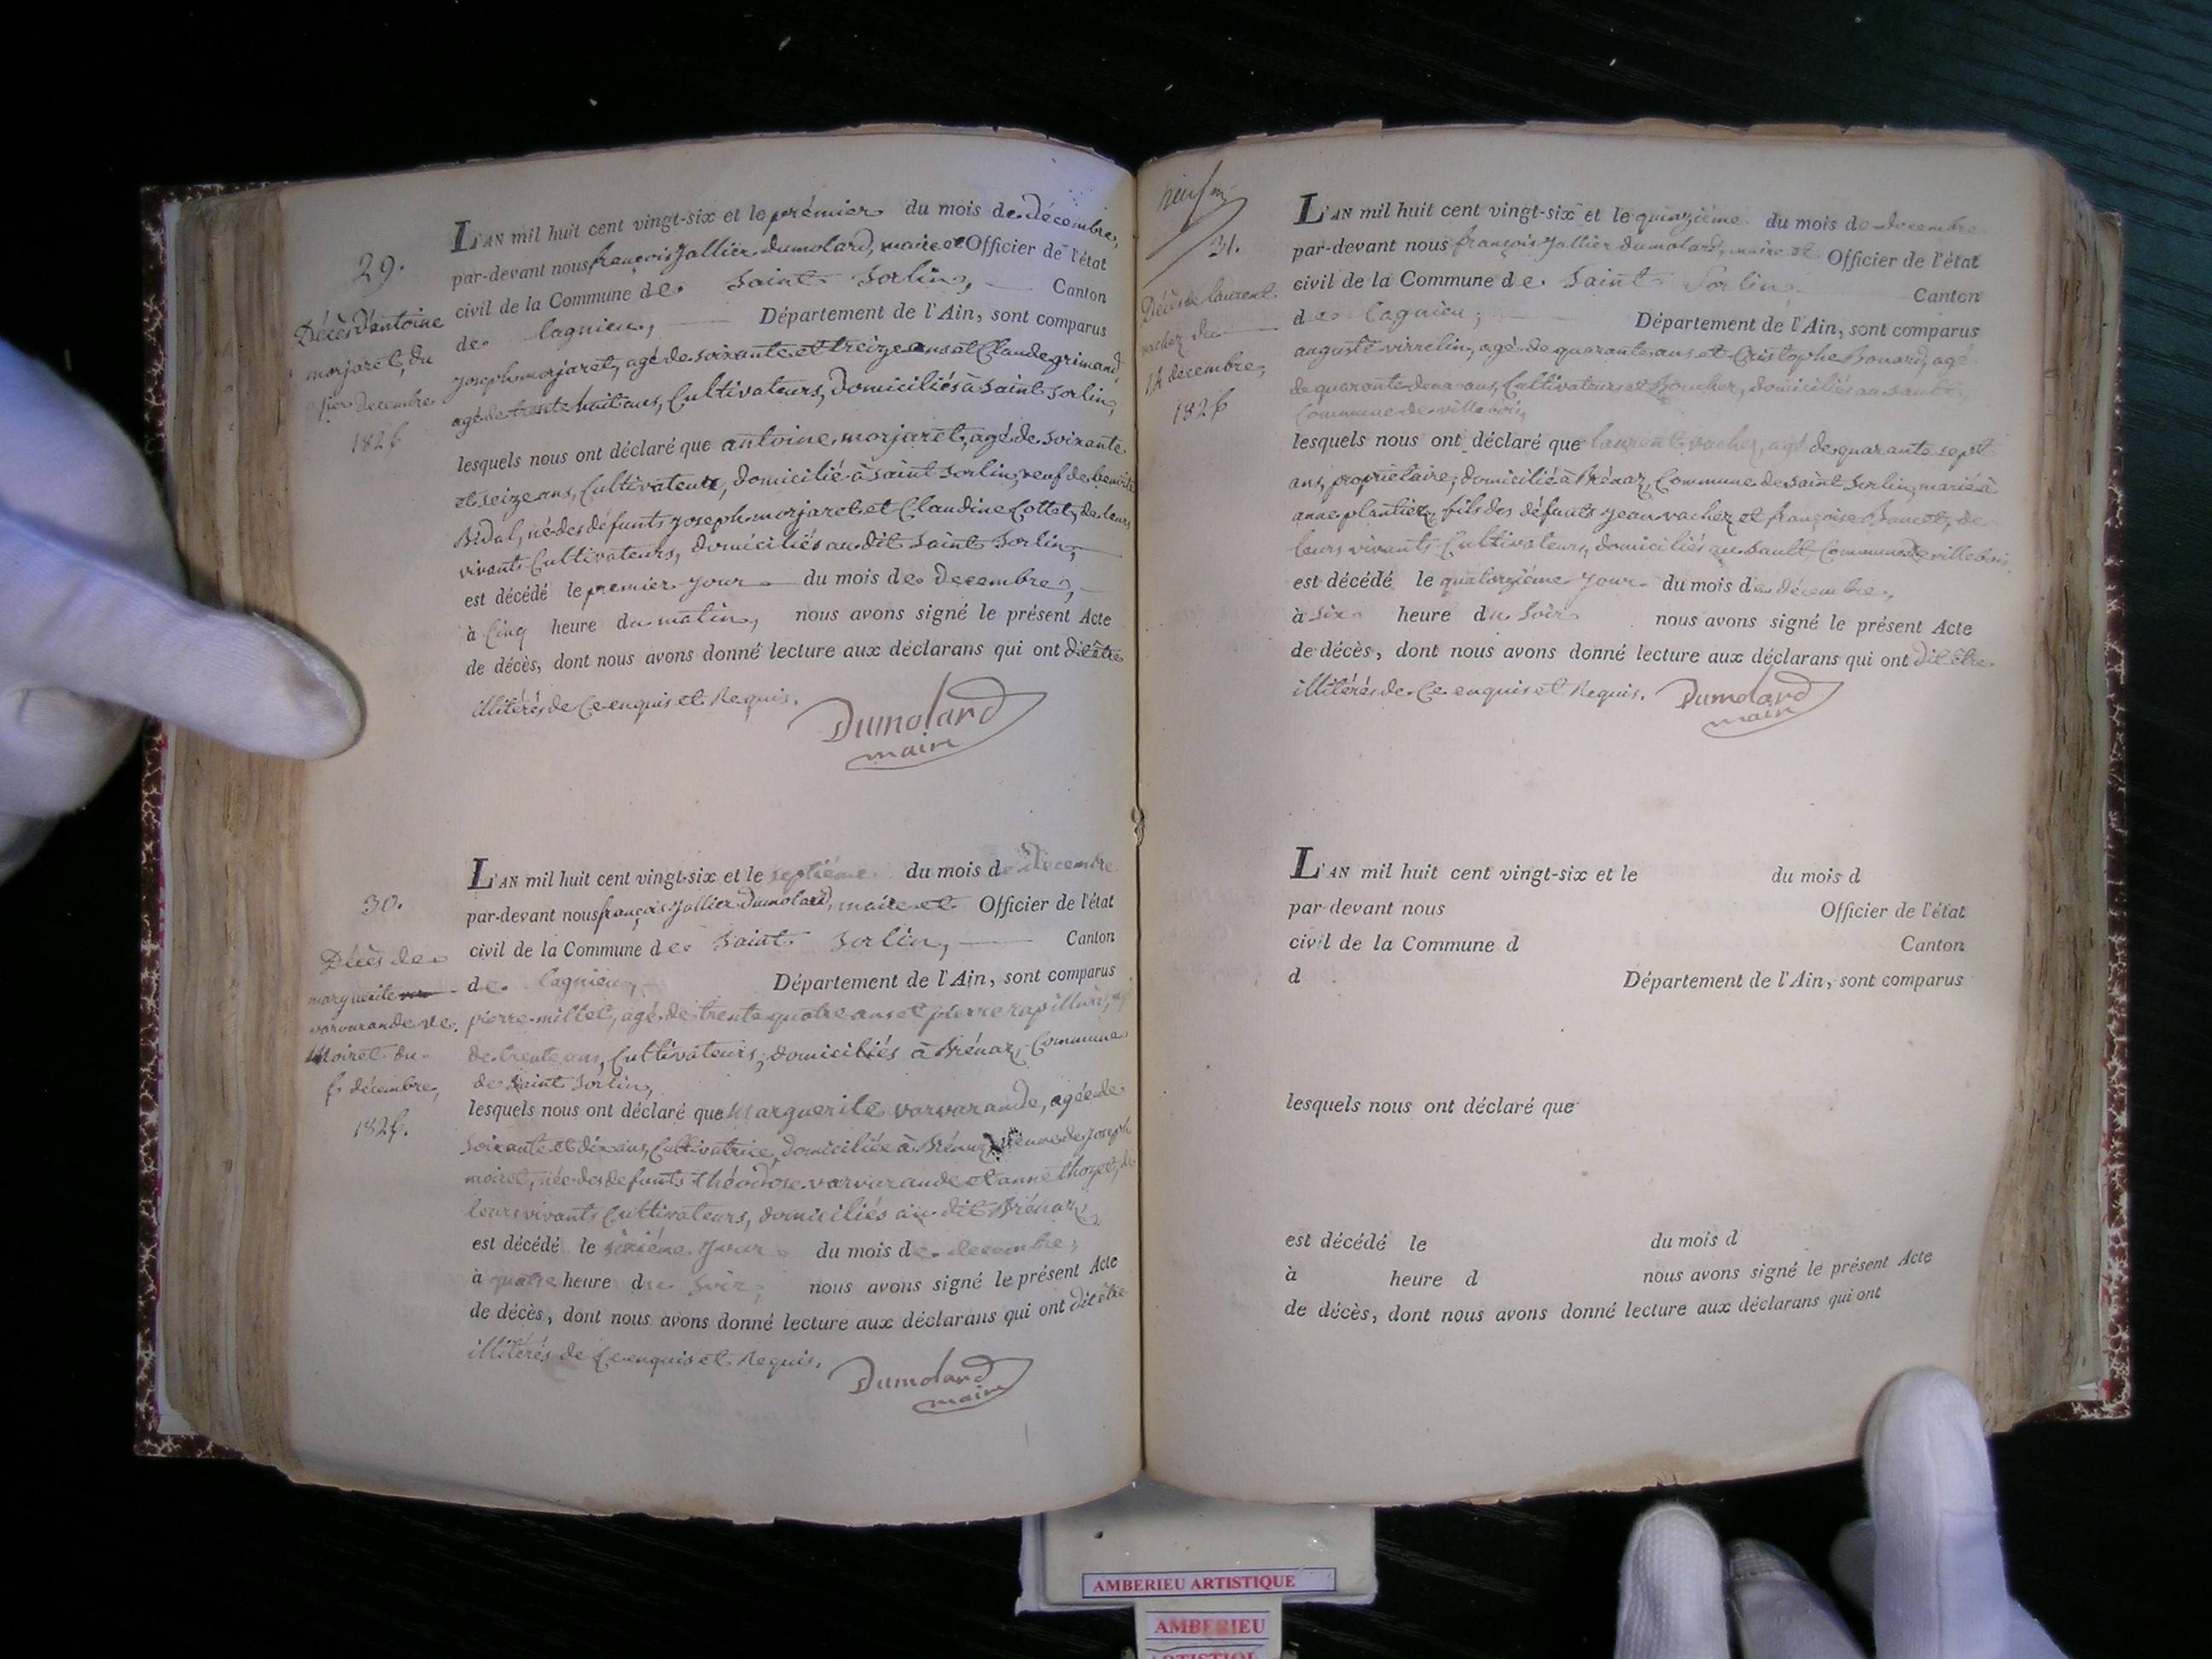 29.
Décès d'antoine
morjaret, du
1er Decembre
1826
L'AN mil huit cent vingt-six et le prémier du mois de décembre,
par-devant nous françois Jallier Dumolard, maire et Officier de l'état
civil de la Commune de Saint Sorlin, Canton
de Lagnieu, Département de l'Ain, sont comparus
joseph morjaret, agé de soixante et treize ans et Claude grimand,
agé de trente huit ans, Cultivateurs, domiciliés à Saint Sorlin,
lesquels nous ont déclaré que antoine morjaret, agé de soixante
et seize ans, Cultivateur, domicilié à saint sorlin, veuf de
Bidal, né des défunts joseph morjaret et Claudine Cottet, de leurs
vivants Cultivateurs, domiciliés au dit Saint Sorlin,
est décédé le premier jour du mois de decembre,
à Cinq heure du matin, nous avons signé le présent Acte
de décès, dont nous avons donné lecture aux déclarans qui ont dit être
illitérés de Ce enquis et Requis.
Dumolard
maire
30.
Décès de
marguerite
varvarande ve.
Moiret du
6 décembre,
1826.
L'AN mil huit cent vingt-six et le septiéme du mois de Decembre
par-devant nous françois Jallier Dumolard, maire et Officier de l'état
civil de la Commune de Saint Sorlin, Canton
de Lagnieu, Département de l'Ain, sont comparus
pierre millet, agé de trente quatre ans et pierre
de trente ans, Cultivateurs, domiciliés à Brénaz, Commune
de Saint Sorlin,
lesquels nous ont déclaré que Marguerite varvarande, agée de
soixante et dix ans, Cultivatrice, domiciliée à Brénaz, veuve de joseph
moiret, née des defunts théodose varvarande et anne thozet, de
leurs vivants Cultivateurs, domiciliés au dit Brénaz,
est décédé le sixiéme jour du mois de decembre,
à quatre heure du soir, nous avons signé le présent Acte
de décès, dont nous avons donné lecture aux déclarans qui ont dit être
illitérés de Ce enquis et Requis.
Dumolard
maire
31.
Décès de laurent
vachez du
14 décembre,
1826
L'AN mil huit cent vingt-six et le quinziéme du mois de decembre
par-devant nous françois Jallier Dumolard, maire et Officier de l'état
civil de la Commune de Saint Sorlin Canton
de Lagnieu, Département de l'Ain, sont comparus
auguste virrelin, agé de quarante ans et Cristophe Bonard, agé
de quarante deux ans, Cultivateur et Boucher, domiciliés au sault,
Commune de villebois,
lesquels nous ont déclaré que laurent vachez, agé de quarante sept
ans, propriétaire, domicilié à Brénaz, Commune de saint Sorlin, marié à
anne plantier, fils des défunts jean vachez et françoise, de
leurs vivants Cultivateurs, domiciliés au Sault Commune de villebois
est décédé le quatorziéme jour du mois de décembre,
à six heure du soir nous avons signé le présent Acte
de décès, dont nous avons donné lecture aux déclarans qui ont dit être
illitérés de Ce enquis et Requis.
Dumolard
maire
L'AN mil huit cent vingt-six et le du mois d
par-devant nous Officier de l'état
civil de la Commune d Canton
d Département de l'Ain, sont comparus
lesquels nous ont déclaré que
est décédé le du mois d
à heure d nous avons signé le présent Acte
de décès, dont nous avons donné lecture aux déclarans qui ont
AMBERIEU ARTISTIQUE
AMBERIEU
ARTISTIQUE